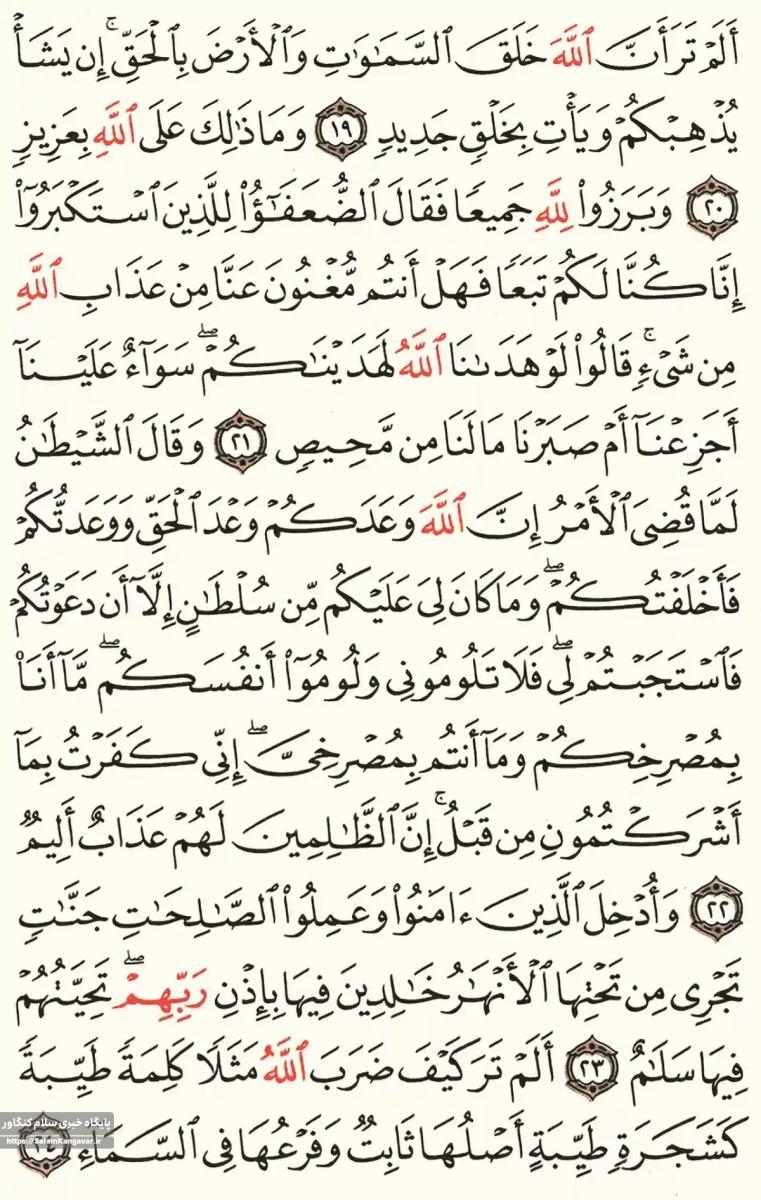 أَلَمْ تَرَ أَنَّ ٱللَّهَ خَلَقَ ٱلسَّمَٰوَٰتِ وَٱلْأَرْضَ بِٱلْحَقِّ ۚ إِن يَشَأْ
يُذْهِبْكُمْ وَيَأْتِ بِخَلْقٍ جَدِيدٍ ١٩ وَمَا ذَٰلِكَ عَلَى ٱللَّهِ بِعَزِيزٍ
٢٠ وَبَرَزُوا۟ لِلَّهِ جَمِيعًا فَقَالَ ٱلضُّعَفَٰٓؤُا۟ لِلَّذِينَ ٱسْتَكْبَرُوٓا۟
إِنَّا كُنَّا لَكُمْ تَبَعًا فَهَلْ أَنتُم مُّغْنُونَ عَنَّا مِنْ عَذَابِ ٱللَّهِ
مِن شَىْءٍ ۚ قَالُوا۟ لَوْ هَدَىٰنَا ٱللَّهُ لَهَدَيْنَٰكُمْ ۖ سَوَآءٌ عَلَيْنَآ
أَجَزِعْنَآ أَمْ صَبَرْنَا مَا لَنَا مِن مَّحِيصٍ ٢١ وَقَالَ ٱلشَّيْطَٰنُ
لَمَّا قُضِىَ ٱلْأَمْرُ إِنَّ ٱللَّهَ وَعَدَكُمْ وَعْدَ ٱلْحَقِّ وَوَعَدتُّكُمْ
فَأَخْلَفْتُكُمْ ۖ وَمَا كَانَ لِىَ عَلَيْكُم مِّن سُلْطَٰنٍ إِلَّآ أَن دَعَوْتُكُمْ
فَٱسْتَجَبْتُمْ لِى ۖ فَلَا تَلُومُونِى وَلُومُوٓا۟ أَنفُسَكُم ۖ مَّآ أَنَا۠
بِمُصْرِخِكُمْ وَمَآ أَنتُم بِمُصْرِخِىَّ ۖ إِنِّى كَفَرْتُ بِمَآ
أَشْرَكْتُمُونِ مِن قَبْلُ ۗ إِنَّ ٱلظَّٰلِمِينَ لَهُمْ عَذَابٌ أَلِيمٌ
٢٢ وَأُدْخِلَ ٱلَّذِينَ ءَامَنُوا۟ وَعَمِلُوا۟ ٱلصَّٰلِحَٰتِ جَنَّٰتٍ
تَجْرِى مِن تَحْتِهَا ٱلْأَنْهَٰرُ خَٰلِدِينَ فِيهَا بِإِذْنِ رَبِّهِمْ ۖ تَحِيَّتُهُمْ
فِيهَا سَلَٰمٌ ٢٣ أَلَمْ تَرَ كَيْفَ ضَرَبَ ٱللَّهُ مَثَلًا كَلِمَةً طَيِّبَةً
كَشَجَرَةٍ طَيِّبَةٍ أَصْلُهَا ثَابِتٌ وَفَرْعُهَا فِى ٱلسَّمَآءِ ٢٤
پایگاه خبری سلام کنگاور
https://SalamKangavar.ir